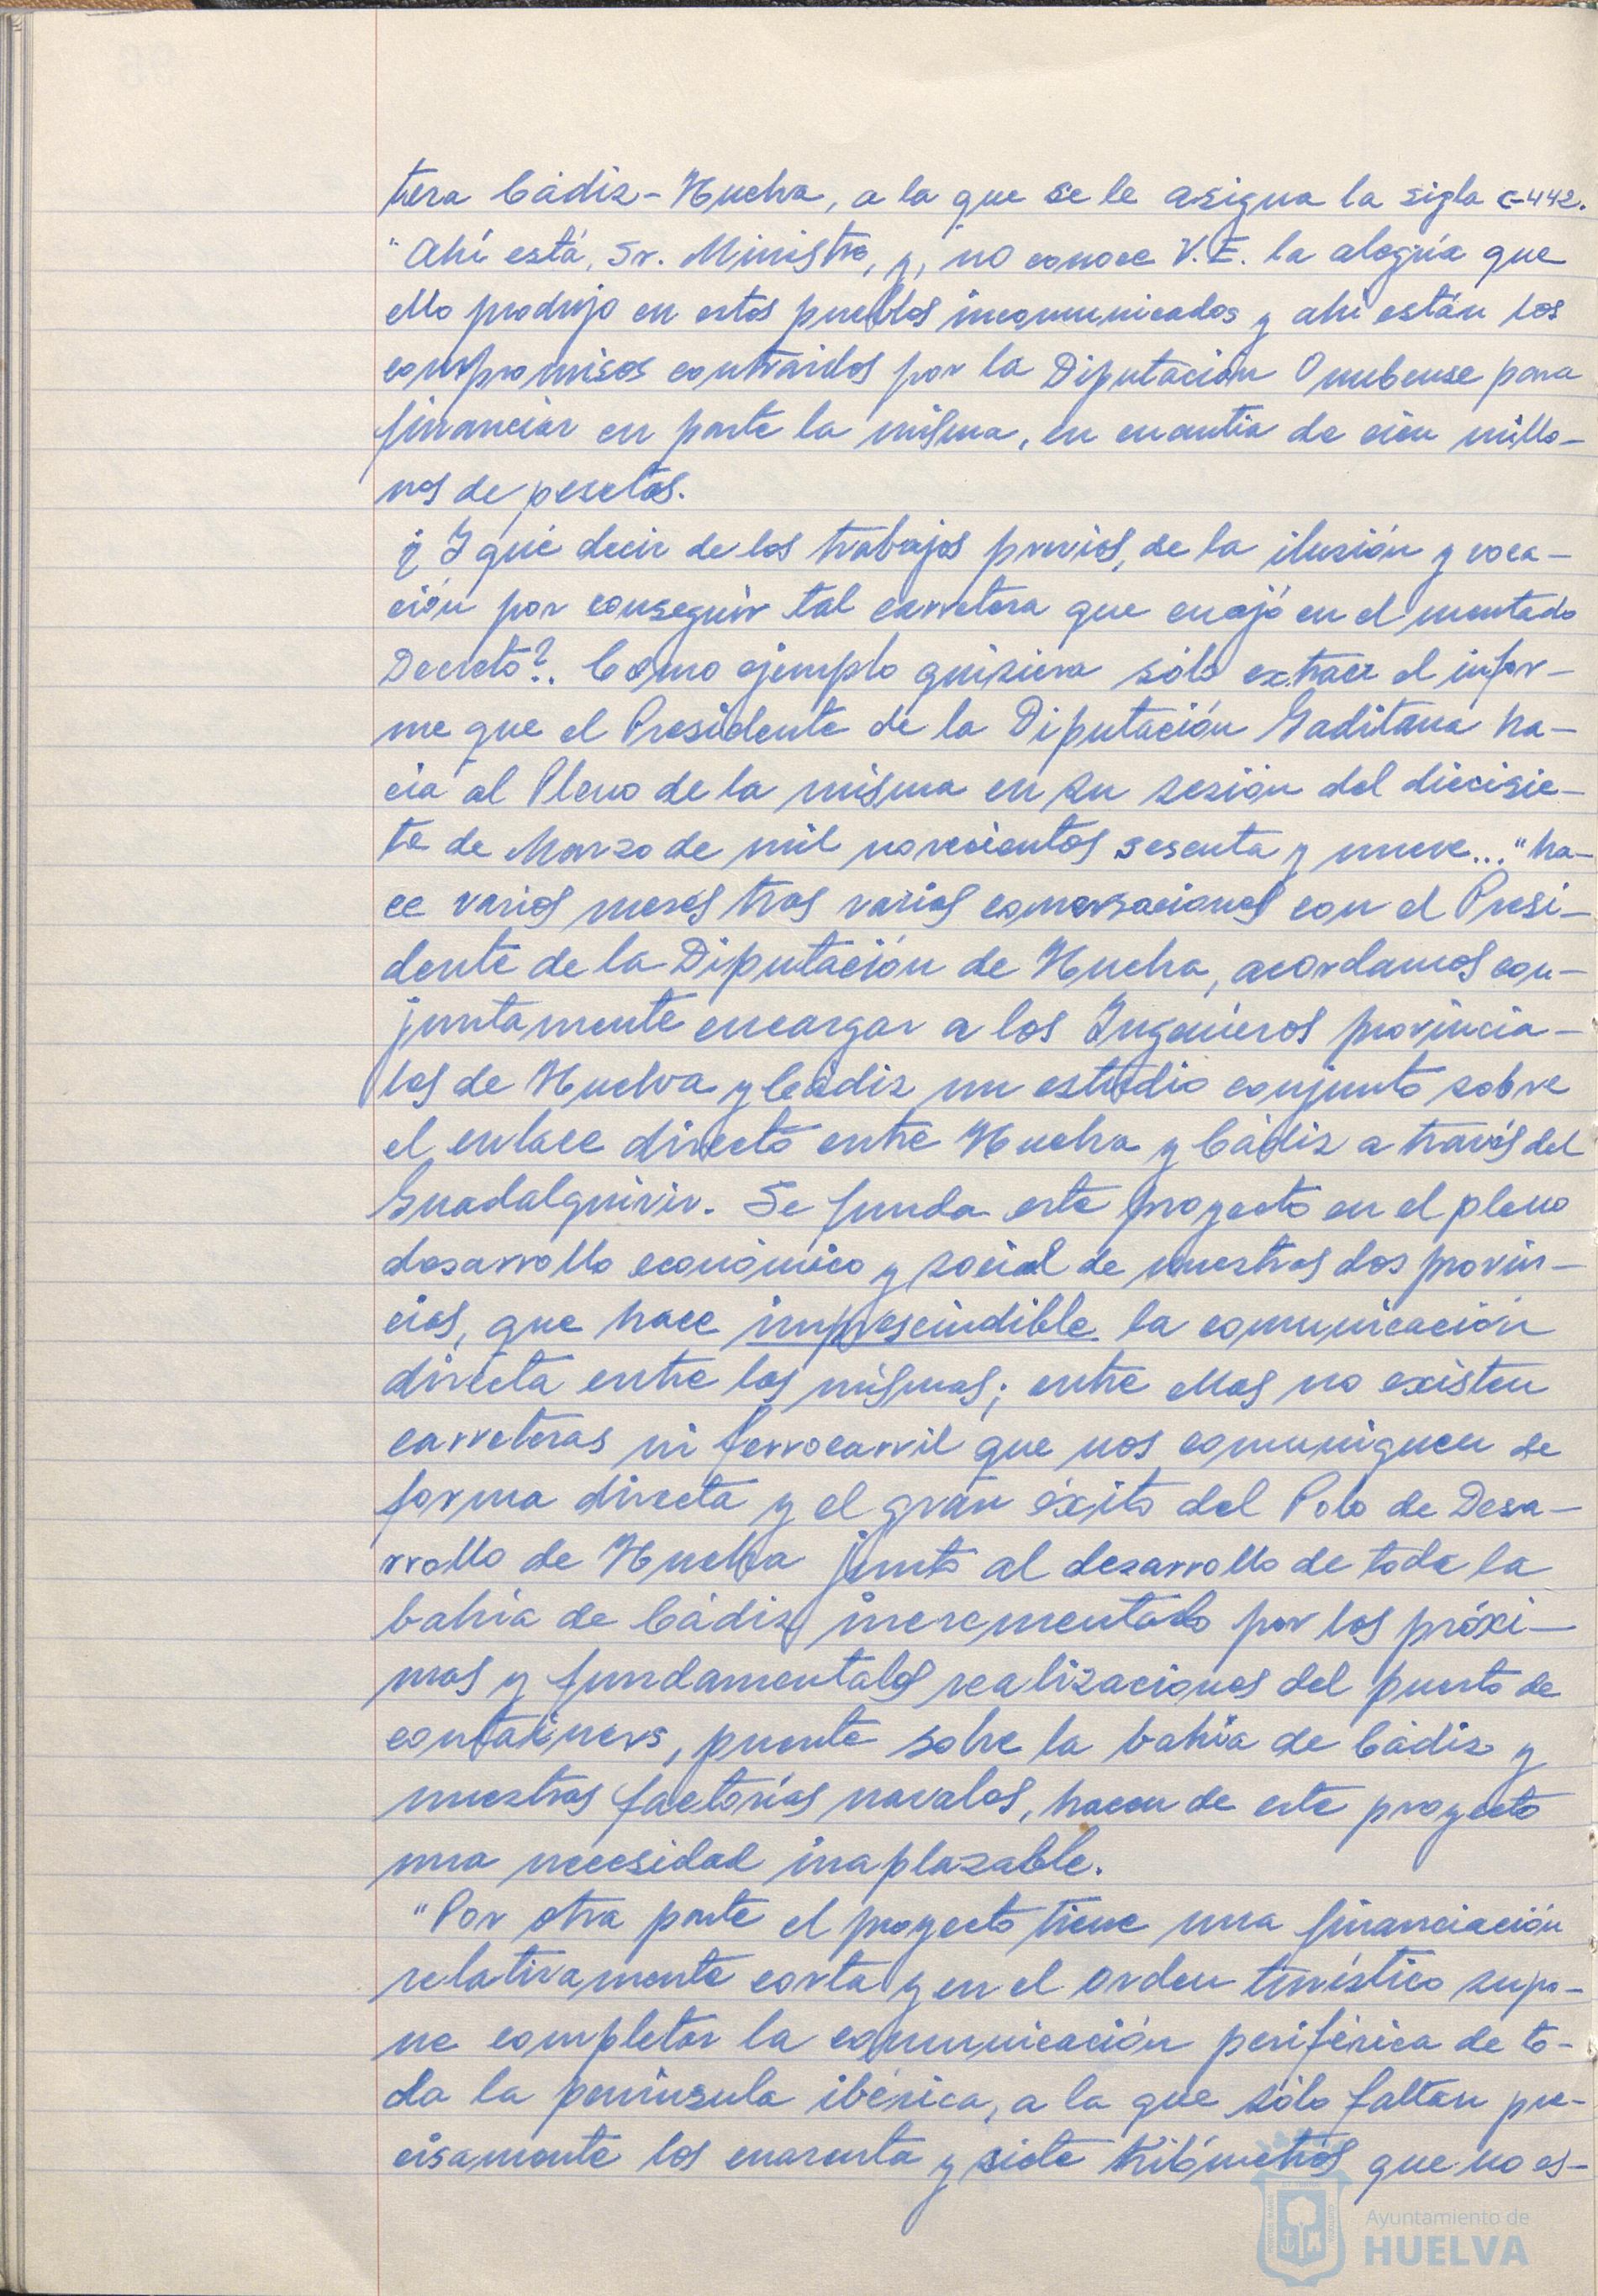 tera Cádiz-Huelva, a la que se le asigna la sigla C-442.
"Ahí está, Sr. Ministro, y, no conoce V.E. la alegría que
ello produjo en estos pueblos incomunicados y ahí están los
compromisos contraidos por la Diputación Onubense para
financiar en parte la misma, en cuantia de cien millo-
nes de pesetas.
¿Y qué decir de los trabajos previos, de la ilusión y voca-
ción por conseguir tal carretera que cuajó en el mentado
Decreto?. Como ejemplo quisiera sólo extraer el infor-
me que el Presidente de la Diputación Gaditana ha-
cía al Pleno de la misma en su sesión del diecisie-
te de Marzo de mil novecientos sesenta y nueve... "ha-
ce varios meses tras varias conversaciones con el Presi-
dente de la Diputación de Huelva, acordamos con-
juntamente encargar a los Ingenieros provincia-
les de Huelva y Cádiz un estudio conjunto sobre
el enlace directo entre Huelva y Cádiz a través del
Guadalquivir. Se funda este proyecto en el pleno
desarrollo económico y social de nuestras dos provin-
cias, que hace imprescindible la comunicación
directa entre las mismas; entre ellas no existen
carreteras ni ferrocarril que nos comuniquen de
forma directa y el gran éxito del Polo de Desa-
rrollo de Huelva junto al desarrollo de toda la
bahía de Cádiz, incrementado por los próxi-
mas y fundamentales realizaciones del puerto de
containers, puente sobre la bahía de Cádiz y
nuestras factorías navales, hacen de este proyecto
una necesidad inaplazable.
"Por otra parte el proyecto tiene una financiación
relativamente corta y en el orden turístico supo-
ne completar la comunicación periférica de to-
da la península ibérica, a la que sólo faltan pre-
cisamente los cuarenta y siete kilómetros que no es-
Ayuntamiento de
HUELVA